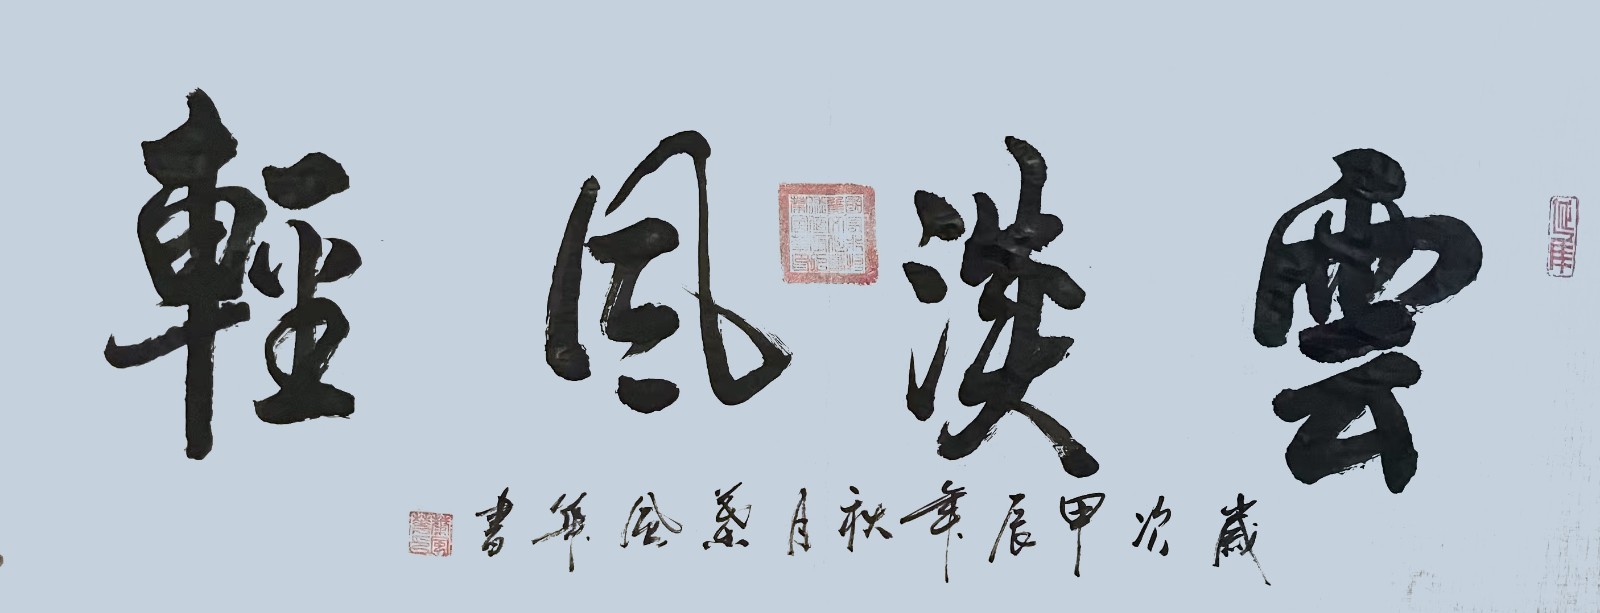 雲淡風輕
歲次甲辰年秋月葉風華書